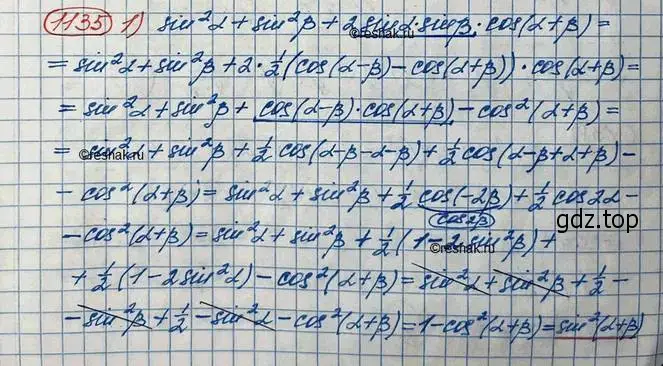 1135 1) sin²α + sin²β + 2 sinα · sinβ · cos(α+β) =
©reshak.ru
= sin²α + sin²β + 2 · ½ (cos(α-β) - cos(α+β)) · cos(α+β) =
= sin²α + sin²β + cos(α-β) · cos(α+β) - cos²(α+β) =
= sin²α + sin²β + ½ cos(α-β-α-β) + ½ cos(α-β+α+β) -
©reshak.ru
©reshak.ru
- cos²(α+β) = sin²α + sin²β + ½ cos(-2β) + ½ cos2α -
cos2β
gdz.top
- cos²(α+β) = sin²α + sin²β + ½ (1 - 2 sin²β) +
©reshak.ru
+ ½ (1 - 2sin²α) - cos²(α+β) = sin²α + sin²β + ½ -
©reshak.ru
- sin²β + ½ - sin²α - cos²(α+β) = 1 - cos²(α+β) = sin²(α+β)